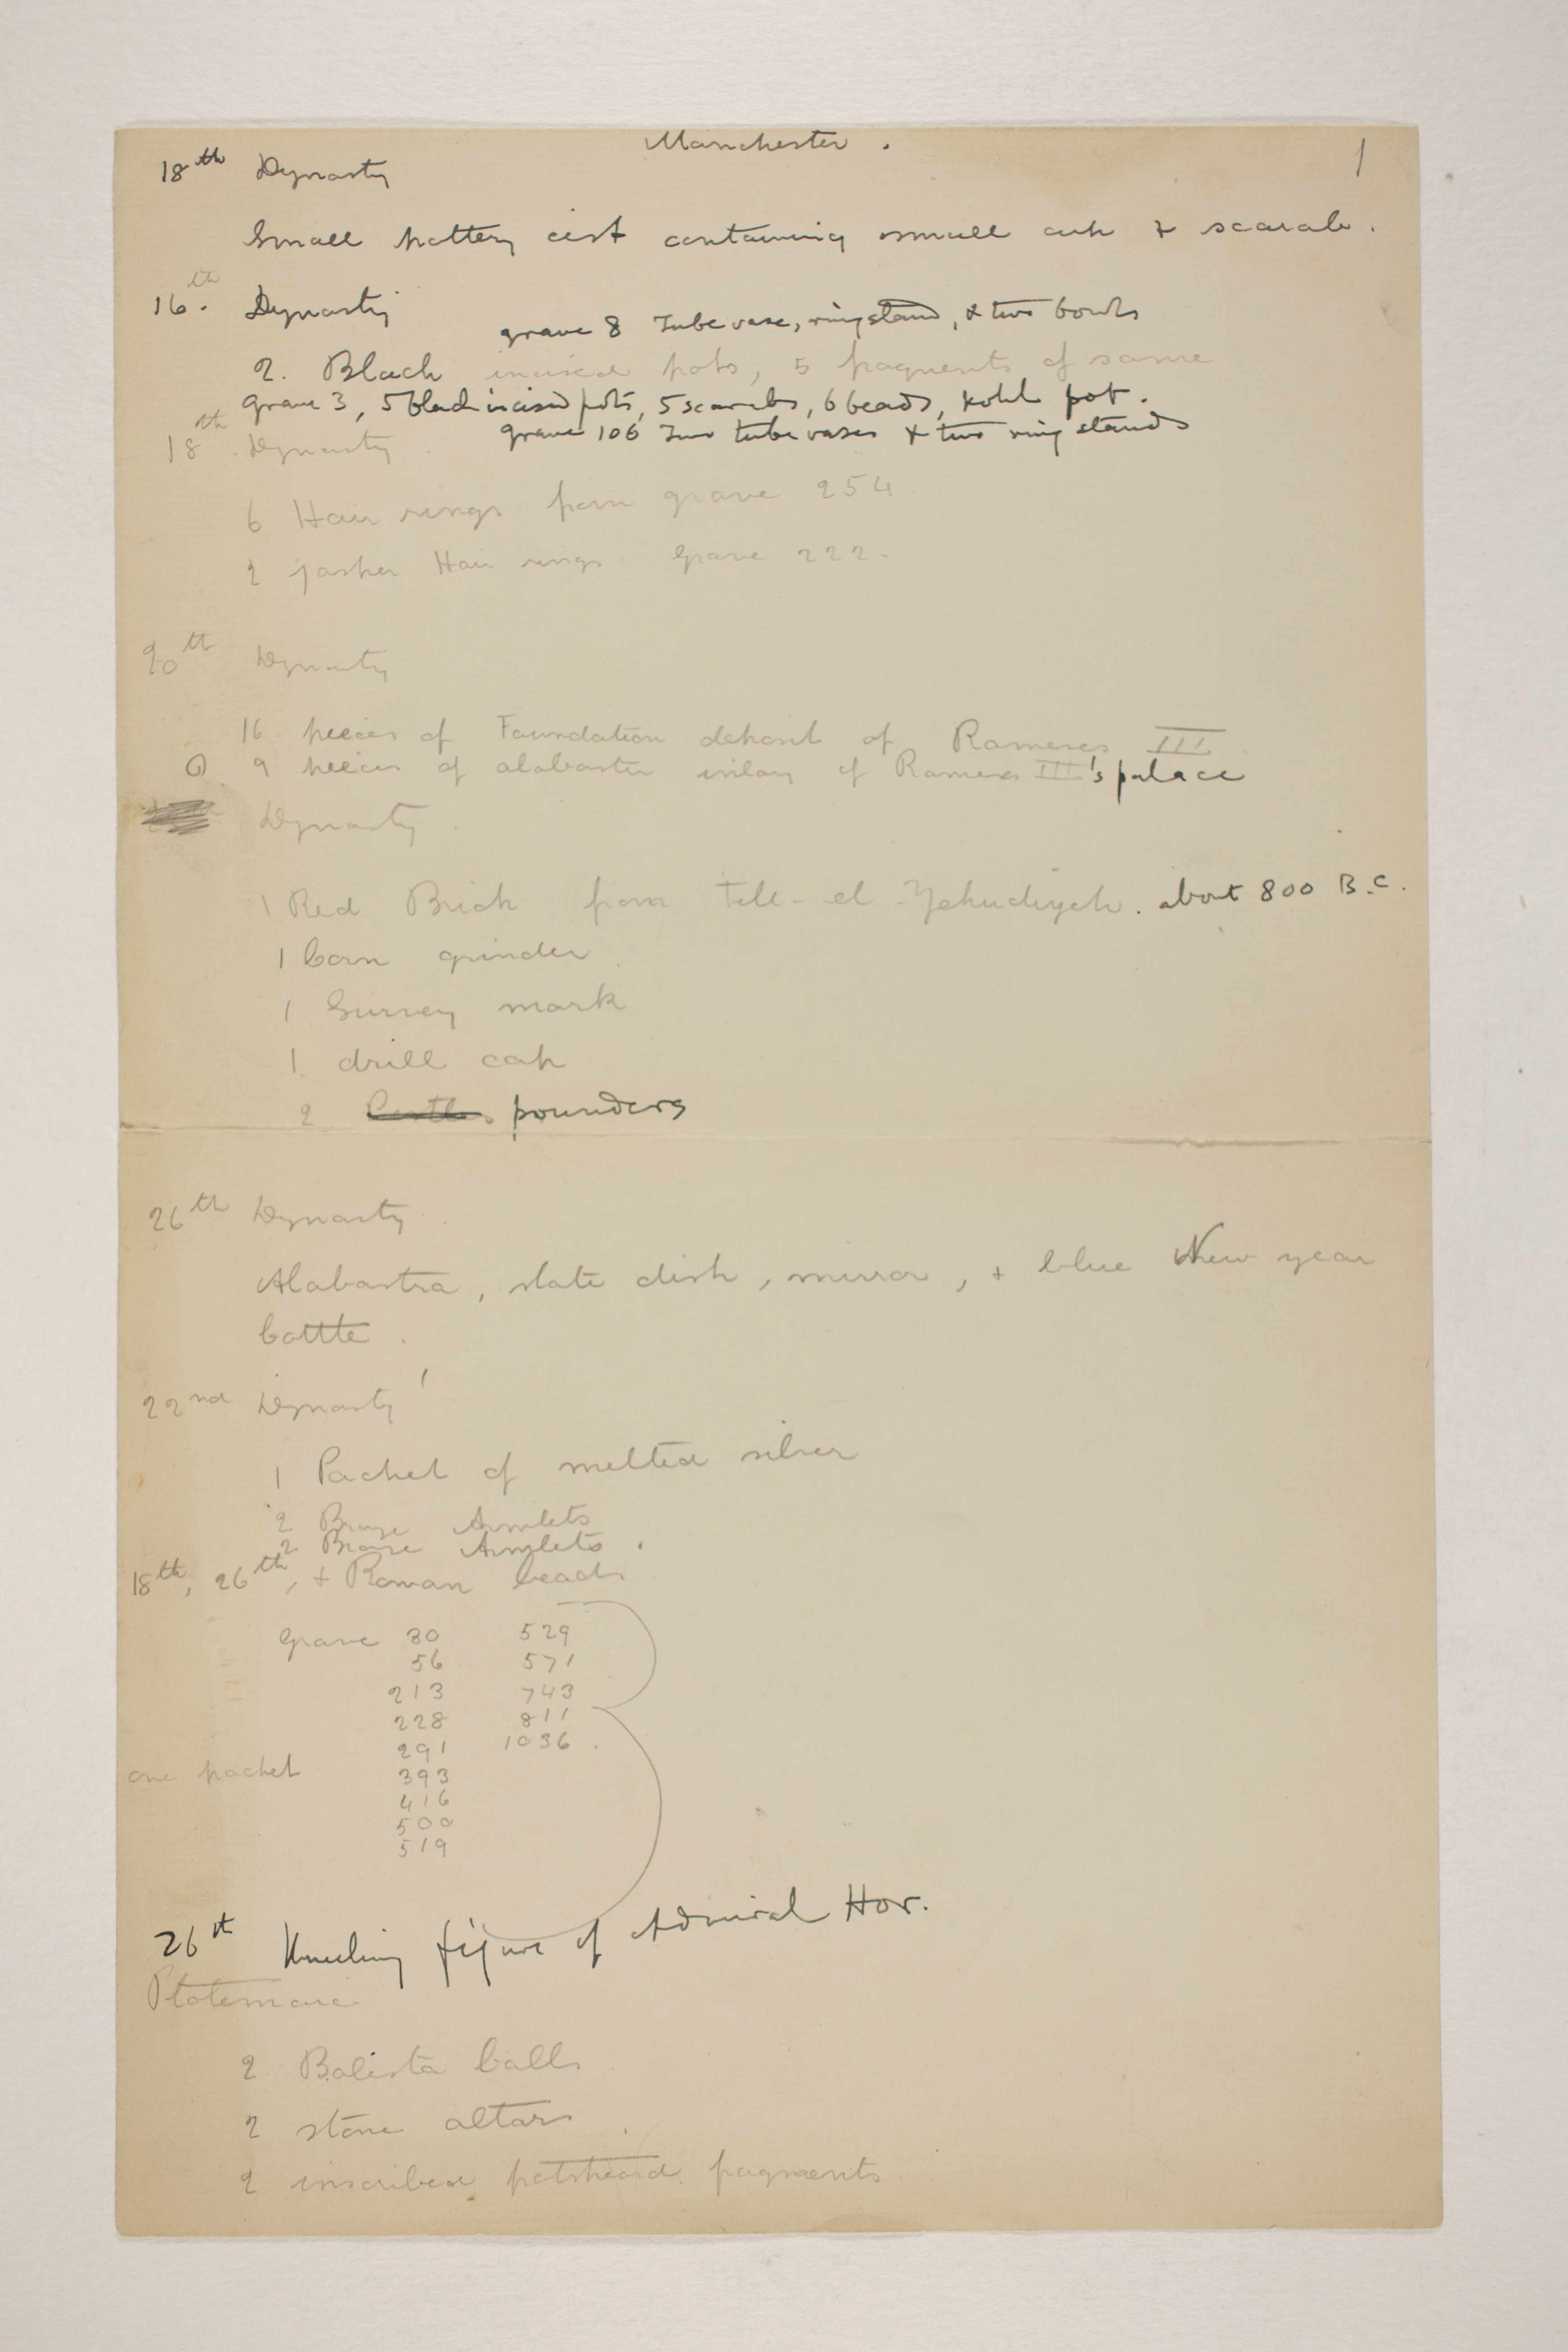 Manchester .
1
18th Dynasty
Small pottery cist containing small cup + scarab .
16.th Dynasty
grave 8 Tube vase, ring stand, & two bowls
2. Black incised pots, 5 fragments of same
Grave 3, 5 black incised pots, 5 scarabs, 6 beads, Kohl pot.
18th Dynasty .
grave 106 Two tube vases & two ring stands
6 Hair rings from grave 254
2 jasper Hair rings. Grave 222-
20th Dynasty
16 pieces of Foundation deposit of Rameses III
9 pieces of alabaster inlay of Rameses III's palace
Dynasty .
1 Red Brick from Tell-el-Yehudiyeh. about 800 B.C.
1 Corn grinder
1 Survey mark
1 drill cap
2 pounders
26th Dynasty
Alabastra, slate dish, mirror, + blue New year
bottle .
22nd Dynasty
1 Packet of melted silver
2 Bronze Armlets
2 Bronze Armlets .
18th, 26th, + Roman beads
Grave 30 529
56 571
213 743
228 811
291 1036 .
one packet 393
416
500
519
26th Kneeling figure of Admiral Hor.
Ptolemaic
2 Balista balls
2 stone altars
2 inscribed potsheard fragments